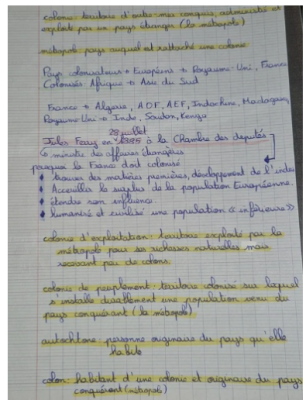 colonie : territoire d'outre-mer conquis, administré et
exploité par un pays étranger (la métropole)
métropole pays auquel est rattaché une colonie
Pays colonisateurs → Européens → Royaume-Uni, France
Colonisés Afrique → Asie du Sud
France → Algérie, AOF, AEF, Indochine, Madagascar,
Royaume-Uni → Inde, Soudan, Kenya
28 juillet
Jules Ferry en 1885 à la Chambre des députés
↳ ministre des affaires étrangères
pourquoi la France doit coloniser
trouver des matières premières, développement de l'indus
Accueillir le surplus de la population Européenne.
étendre son influence
humanisé et civilisé une population « inférieure »
colonie d'exploitation : territoire exploité par la
métropole pour ses richesses naturelles mais
recevant peu de colons.
colonie de peuplement : territoire colonisé sur lequel
s'installe durablement une population venu du
pays conquérant (la métropole)
autochtone : personne originaire du pays qu'elle
habite
colon habitant d'une colonie et originaire du pays
conquérant (métropole)